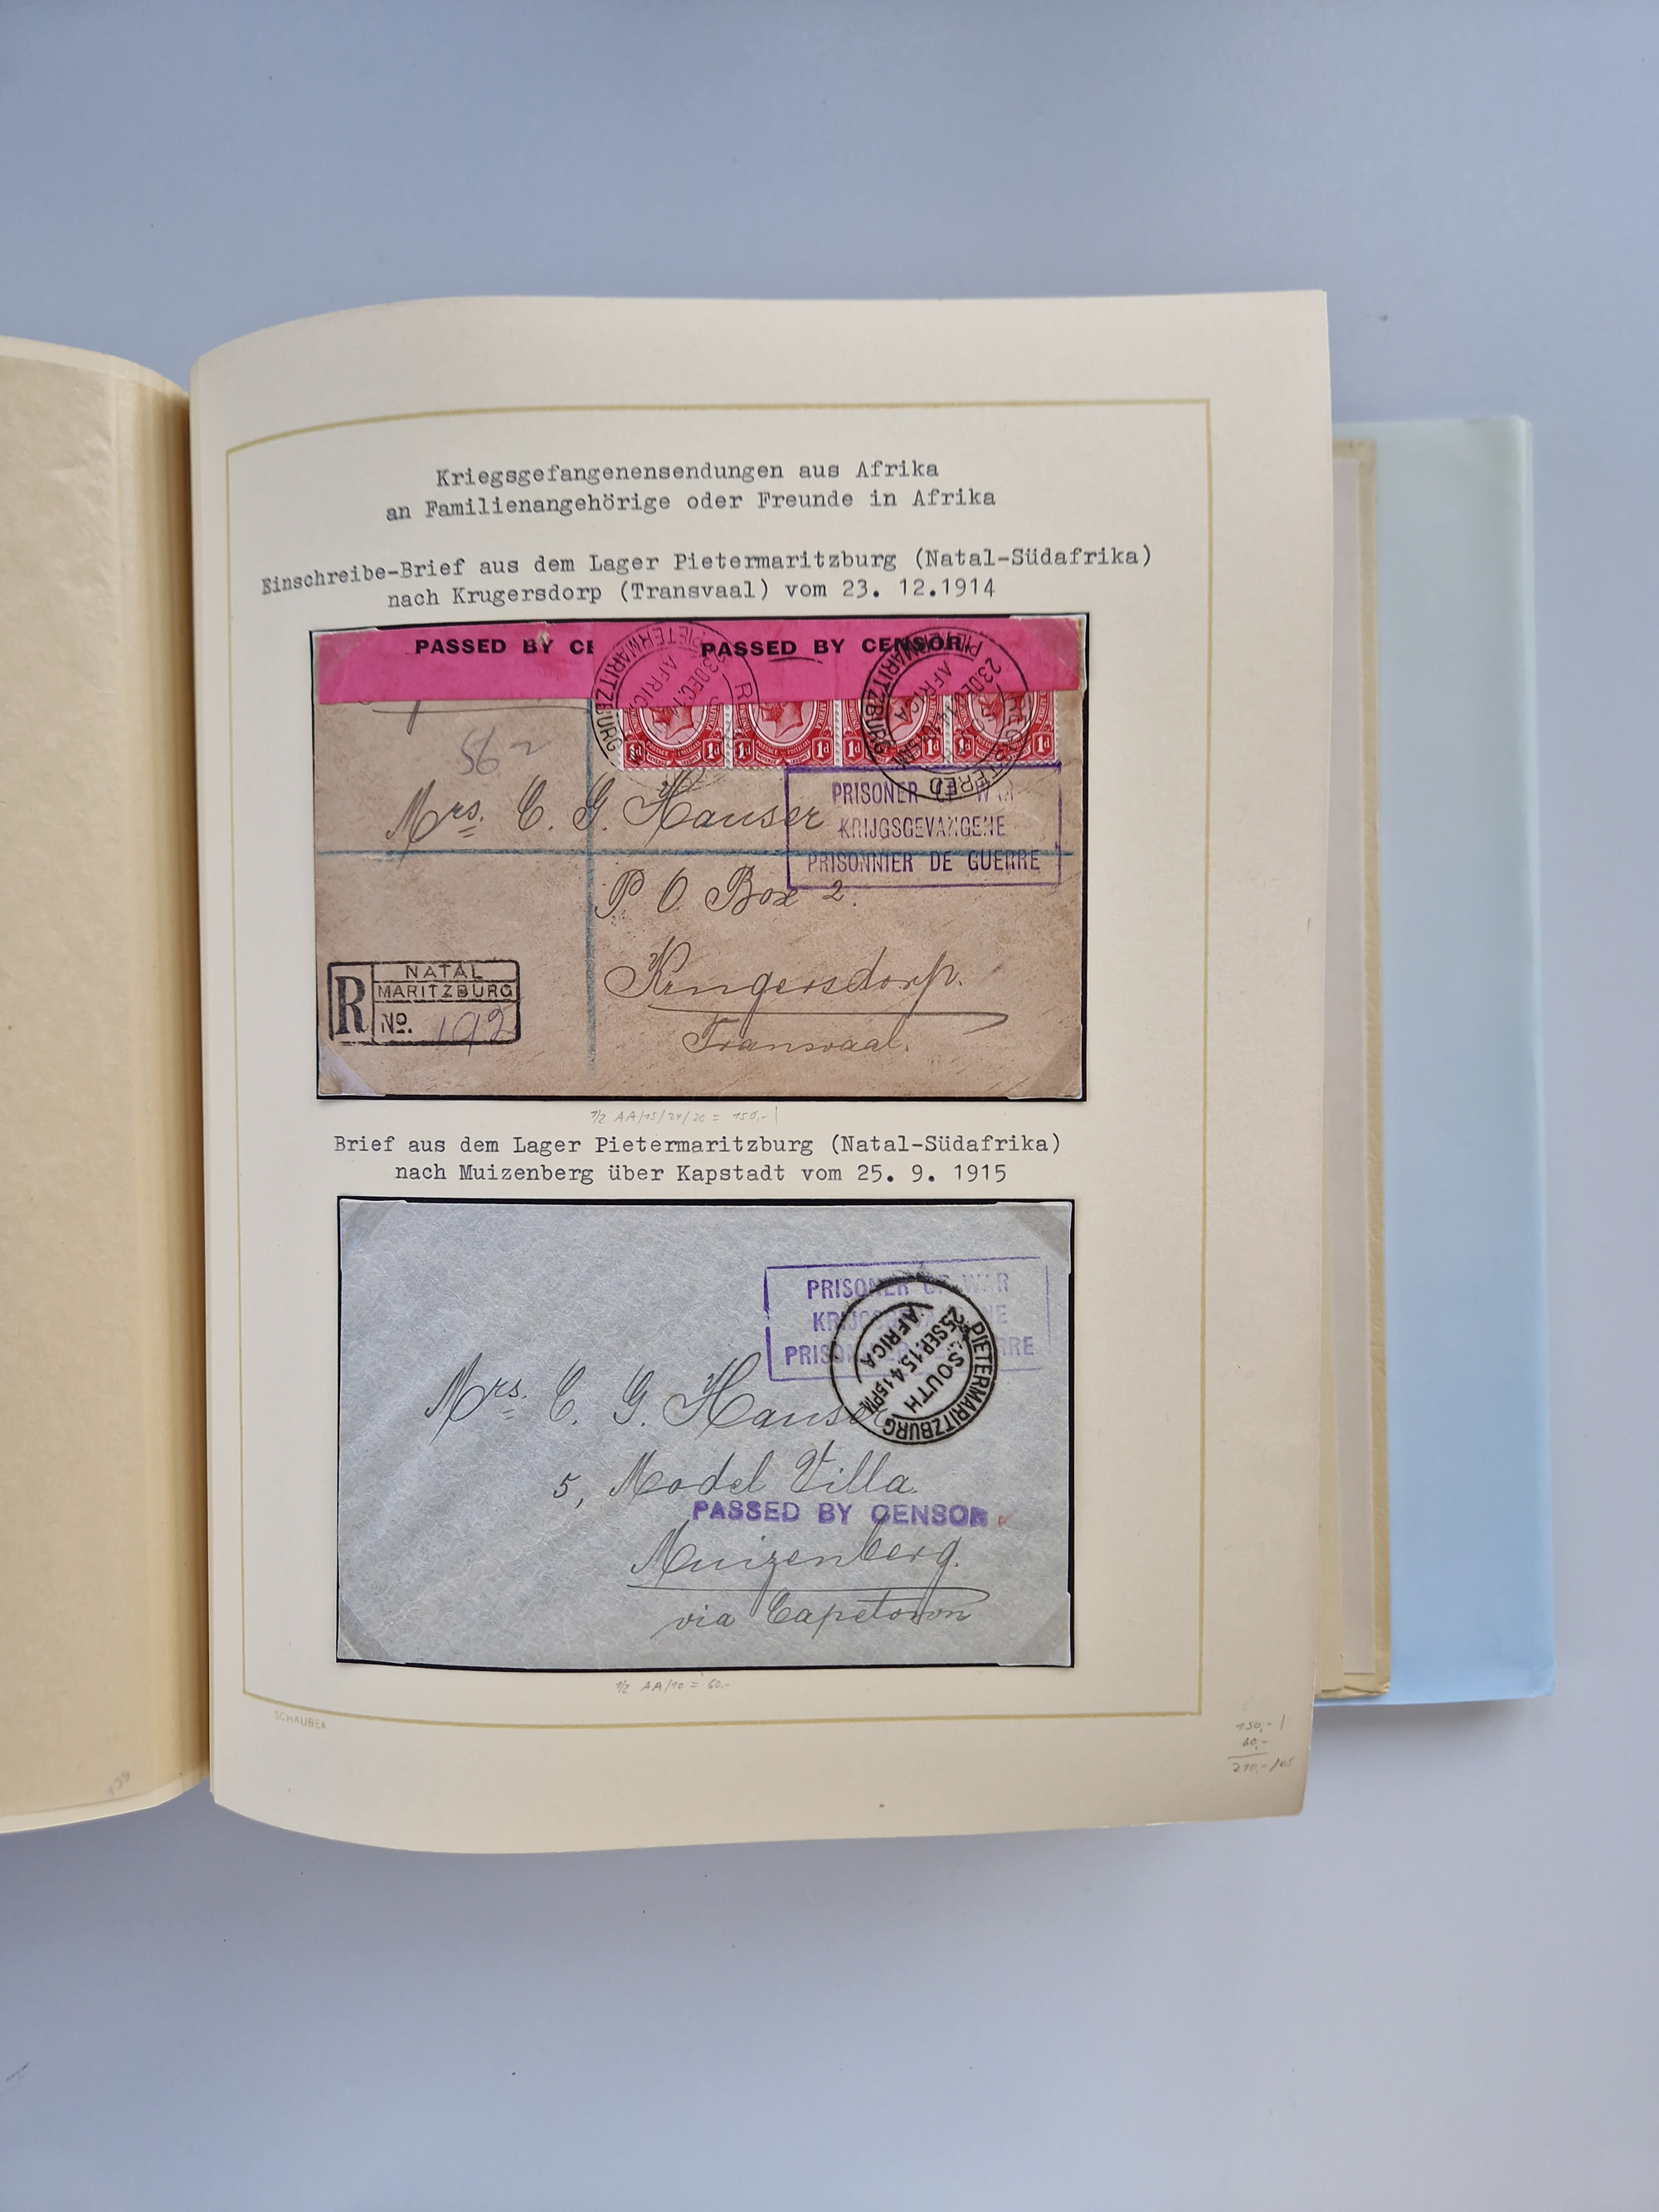 Kriegsgefangenensendungen aus Afrika
an Familienangehörige oder Freunde in Afrika
Einschreibe-Brief aus dem Lager Pietermaritzburg (Natal-Südafrika)
nach Krugersdorp (Transvaal) vom 23. 12.1914
PASSED BY CE
PASSED BY CENSOR
PIETERMARITZBURG
23 DEC
AFRICA
PIETERMARITZBURG
23 DEC 14
AFRICA
REGISTERED
1d 1d 1d 1d 1d 1d 1d
562
Mrs. C. G. Hauser
PRISONER OF WAR
KRIJGSGEVANGENE
PRISONNIER DE GUERRE
P O Box 2.
Krugersdorp.
Transvaal.
R
NATAL
MARITZBURG
No. 192
1/2 AA/15/24/20 = 150,-
Brief aus dem Lager Pietermaritzburg (Natal-Südafrika)
nach Muizenberg über Kapstadt vom 25. 9. 1915
PRISONER OF WAR
KRIJGSGEVANGENE
PRISONNIER DE GUERRE
PIETERMARITZBURG
25 SEP. 15. 4 15 PM
SOUTH
AFRICA
Mrs. C. G. Hauser
5, Model Villa.
PASSED BY CENSOR
Muizenberg.
via Capetown
1/2 AA/10 = 60,-
SCHAUBEK
150,-
60,-
210,-
199